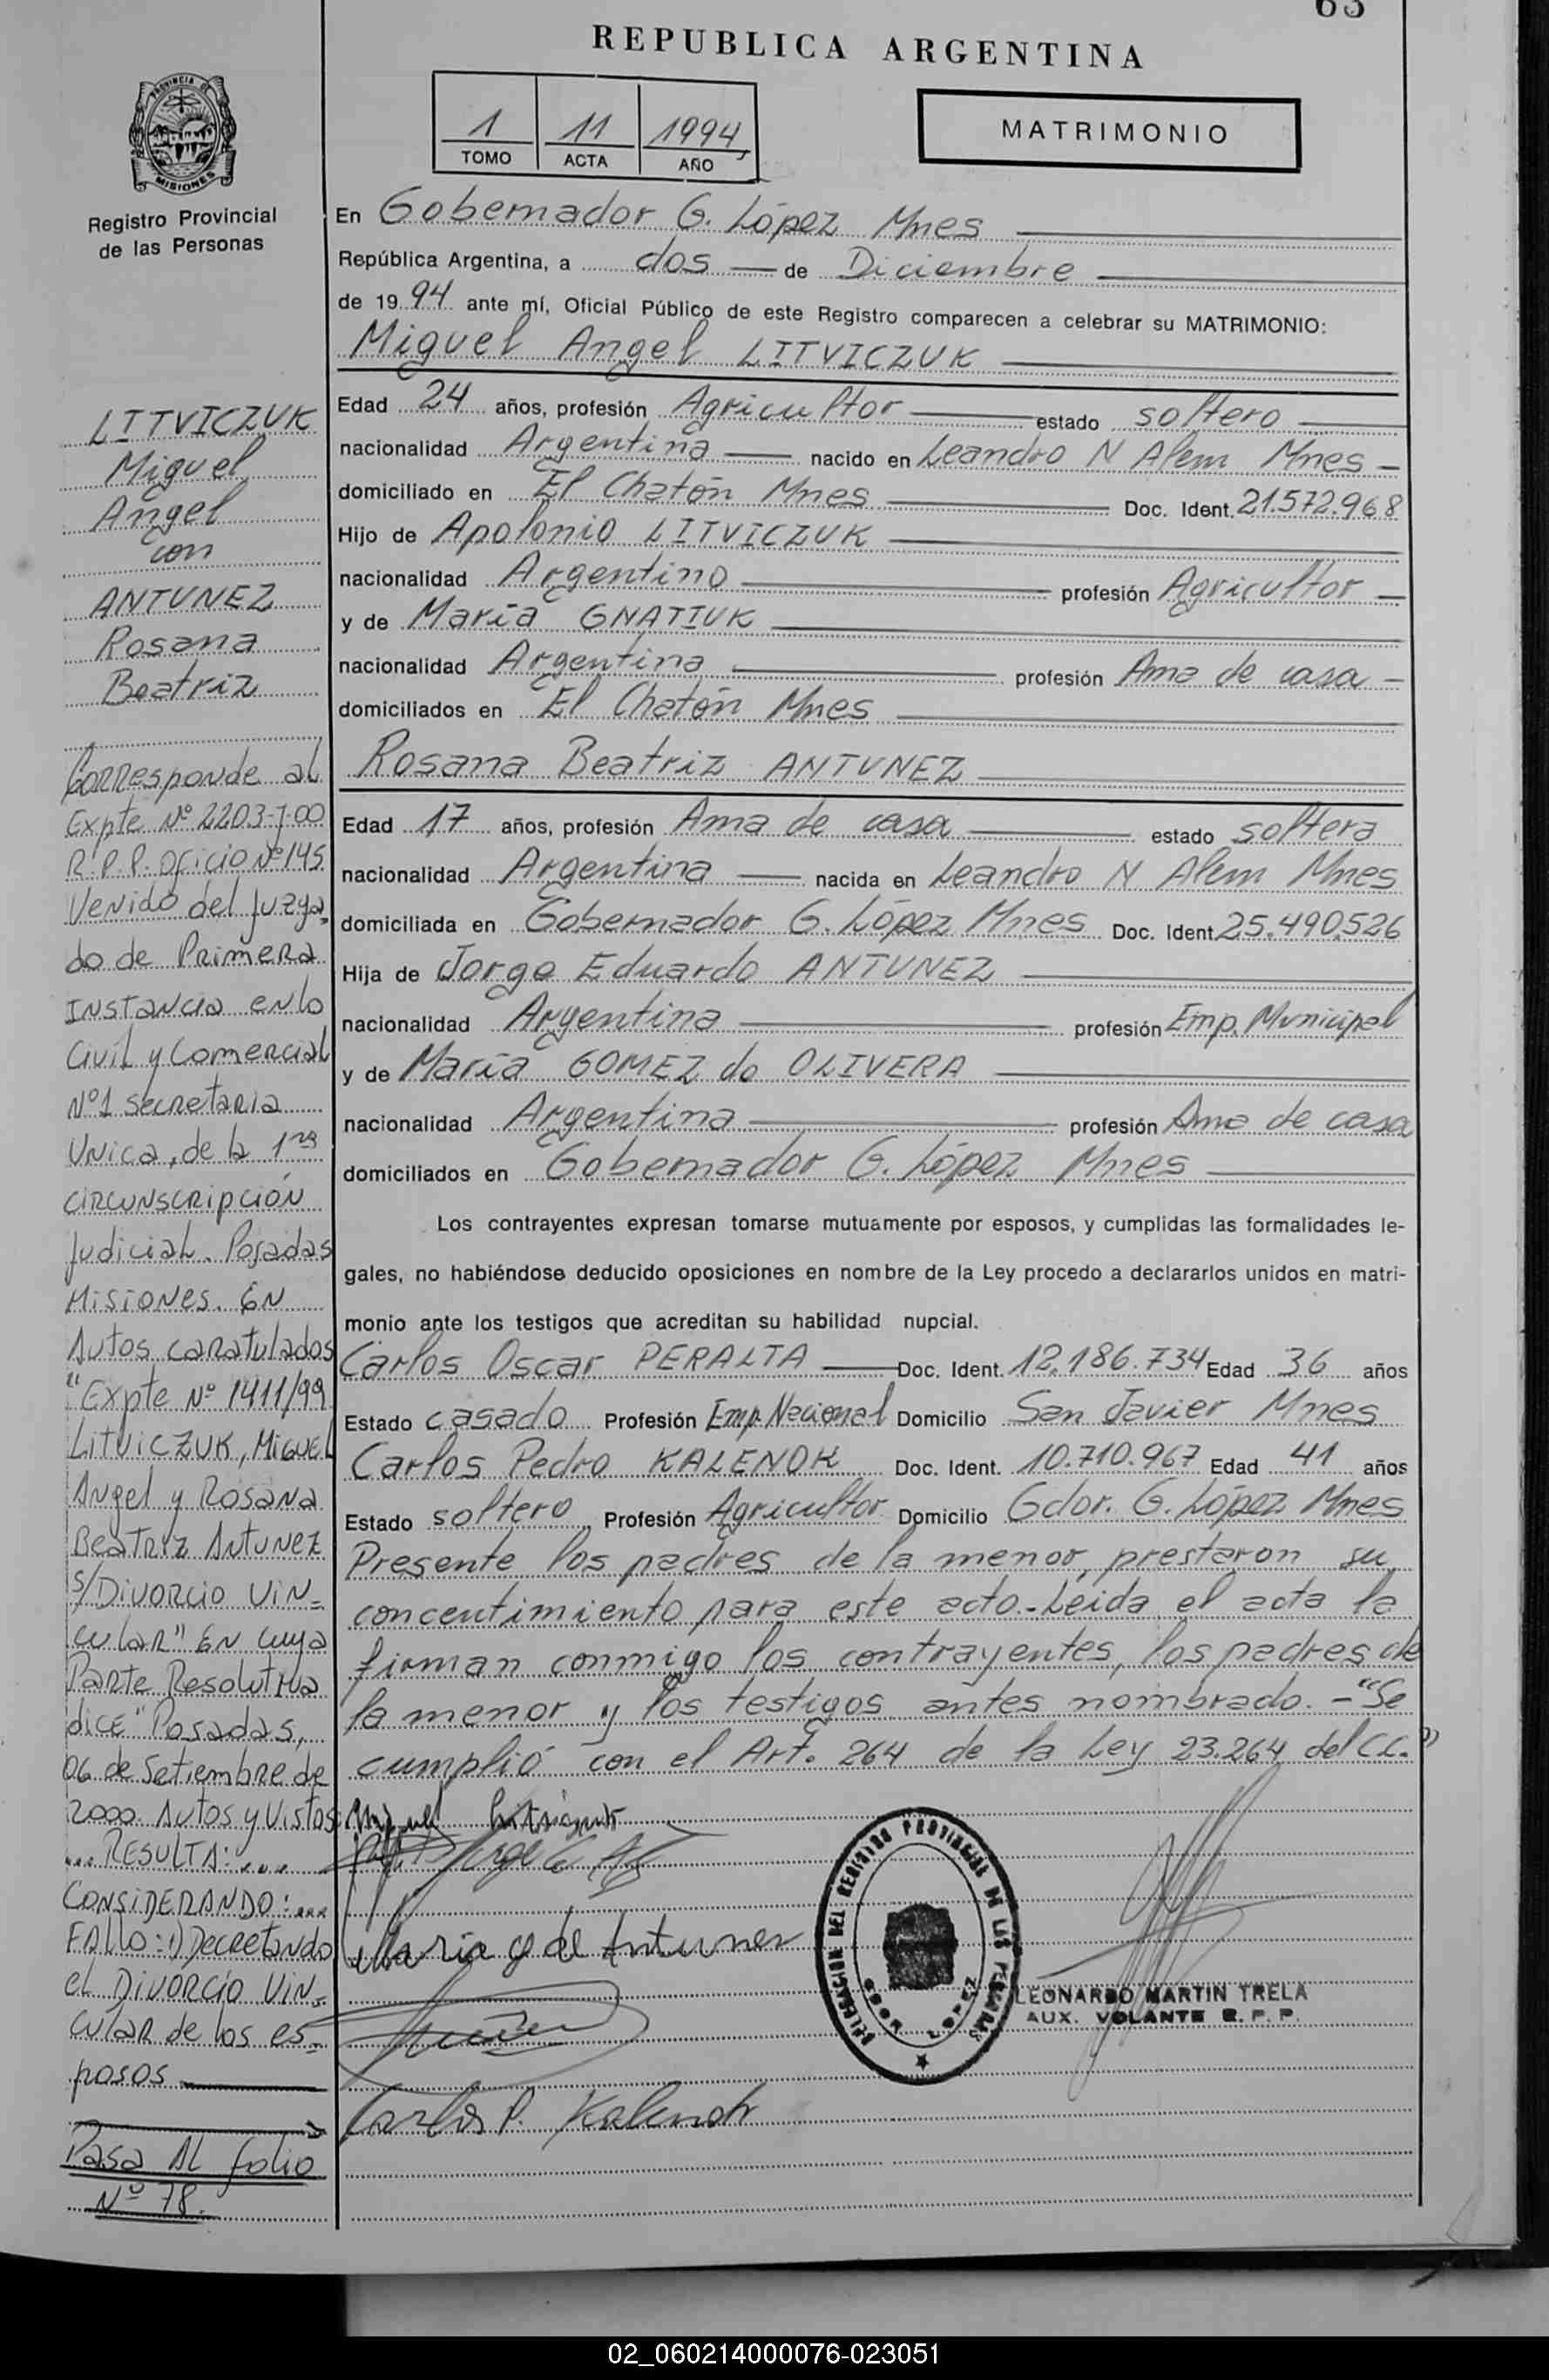 63
REPUBLICA ARGENTINA
1 11 1994
TOMO ACTA AÑO
MATRIMONIO
PROVINCIA DE
MISIONES
Registro Provincial
de las Personas
En Gobernador G. López Mnes
República Argentina, a dos de Diciembre
de 19 94 ante mí, Oficial Público de este Registro comparecen a celebrar su MATRIMONIO:
Miguel Angel LITVICZUK
Edad 24 años, profesión Agricultor estado soltero
nacionalidad Argentina nacido en Leandro N Alem Mnes
domiciliado en El Chatón Mnes Doc. Ident. 21.572.968
Hijo de Apolonio LITVICZUK
nacionalidad Argentino profesión Agricultor
y de María GNATIUK
nacionalidad Argentina profesión Ama de casa
domiciliados en El Chatón Mnes
Rosana Beatriz ANTUNEZ
Edad 17 años, profesión Ama de casa estado soltera
nacionalidad Argentina nacida en Leandro N Alem Mnes
domiciliada en Gobernador G. López Mnes Doc. Ident. 25.490.526
Hija de Jorge Eduardo ANTUNEZ
nacionalidad Argentina profesión Emp. Municipal
y de María GOMEZ da OLIVERA
nacionalidad Argentina profesión Ama de casa
domiciliados en Gobernador G. López Mnes
Los contrayentes expresan tomarse mutuamente por esposos, y cumplidas las formalidades le-
gales, no habiéndose deducido oposiciones en nombre de la Ley procedo a declararlos unidos en matri-
monio ante los testigos que acreditan su habilidad nupcial.
Carlos Oscar PERALTA Doc. Ident. 12.186.734 Edad 36 años
Estado casado Profesión Emp. Nacional Domicilio San Javier Mnes
Carlos Pedro KALENOK Doc. Ident. 10.710.967 Edad 41 años
Estado soltero Profesión Agricultor Domicilio Gdor. G. López Mnes
Presente los padres de la menor, prestaron su
concentimiento para este acto.- Leida el acta la
firman conmigo los contrayentes, los padres de
la menor y los testigos antes nombrado.- "Se
cumplió con el Art. 264 de la Ley 23.264 del CC."
Miguel
Jorge E.
Maria g de Antunez
Carlos P. Kalenok
DELEGACION DEL REGISTRO PROVINCIAL DE LAS PERSONAS
GDOR LOPEZ
LEONARDO MARTIN TRELA
AUX. VOLANTE R. P. P.
LITVICZUK
Miguel
Angel
con
ANTUNEZ
Rosana
Beatriz
Corresponde al
Expte Nº 2203-J-00
R.P.P. Oficio Nº 145
Venido del Juzga-
do de Primera
Instancia en lo
Civil y Comercial
Nº1 Secretaria
Unica, de la 1ra
Circunscripción
Judicial. Posadas
Misiones. En
Autos caratulados
"Expte Nº 1411/99
Litviczuk, Miguel
Angel y Rosana
Beatriz Antunez
s/Divorcio Vin-
cular" En cuya
Parte Resolutiva
dice "Posadas,
06 de Setiembre de
2000. Autos y Vistos
... RESULTA: ...
CONSIDERANDO: ...
FALLO: 1) Decretando
el Divorcio Vin-
cular de los es-
posos
Pasa al folio
Nº 78.
02_060214000076-023051